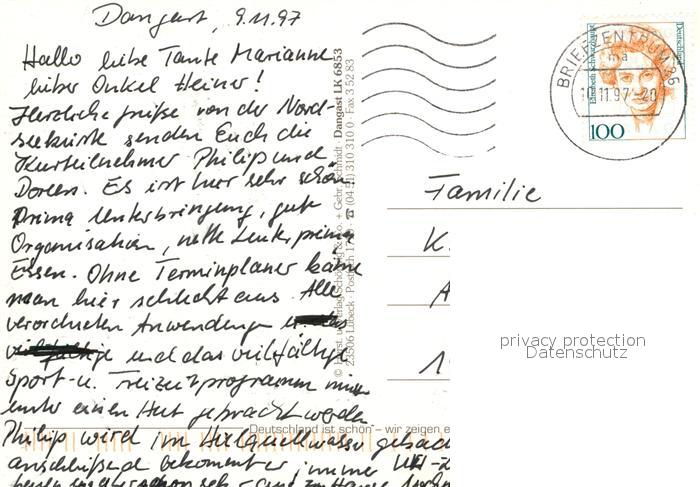 Dangast, 9.11.97
Hallo liebe Tante Marianne
lieber Onkel Heiner!
Herzliche Grüße von der Nord-
seeküste senden Euch die
Kurteilnehmer Philip und
Doreen. Es ist hier sehr schön
Prima Unterbringung, gute
Organisation, nette Leute, prima
Essen. Ohne Terminplaner käme
man hier schlecht aus. Alle
verordneten Anwendungen
und das vielfältige
Sport- u. Freizeitprogramm muss
unter einen Hut gebracht werden
Philip wird im Heilquellwasser gebadet
anschließend bekommt er immer
Dangast LK 6853
23506 Lübeck · Postfach · ☎ (04 51) 310 310 0 · Fax 3 52 83
Deutschland ist schön – wir zeigen e
BRIEFZENTRUM 26
ma
10.11.97-20
Elisabeth Schwarzhaupt
Deutsche
100
Familie
K.
A
1
privacy protection
Datenschutz